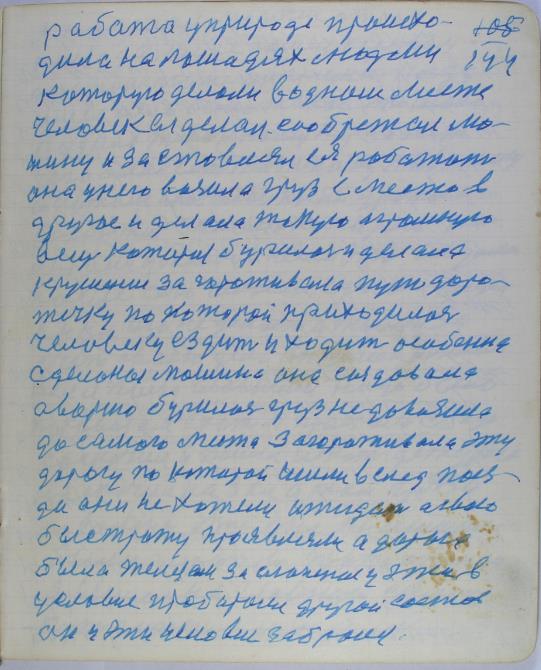 работа у природе происхо-
дила на лошадях людми
которую делали в одном месте
человек ея делал. сообрежал ма-
шину и заставлял ея работать
она у него возила груз с места в
другое и делала такую огромную
вещ которая бурилась и делала
крушение загораживала путь доро-
жечку по которой приходилось
человеку ездит и ходит особенна
сделаная машина она создавала
аварию бурилась груз не довозила
до самого места загораживала эту
дорогу по которой шли вслед поез-
да они не хотели ожидать а свою
быстроту проявляли а дорога
была
условие другой состав
он у эти условие забрался.